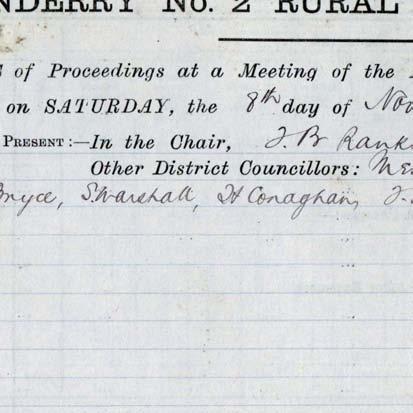 NDERRY No. 2 RURAL
of Proceedings at a Meeting of the
on SATURDAY, the 8th day of Nov
PRESENT:—In the Chair, J. B Rank
Other District Councillors: Me
Bryce, S. Marshall, H Conaghan, J.